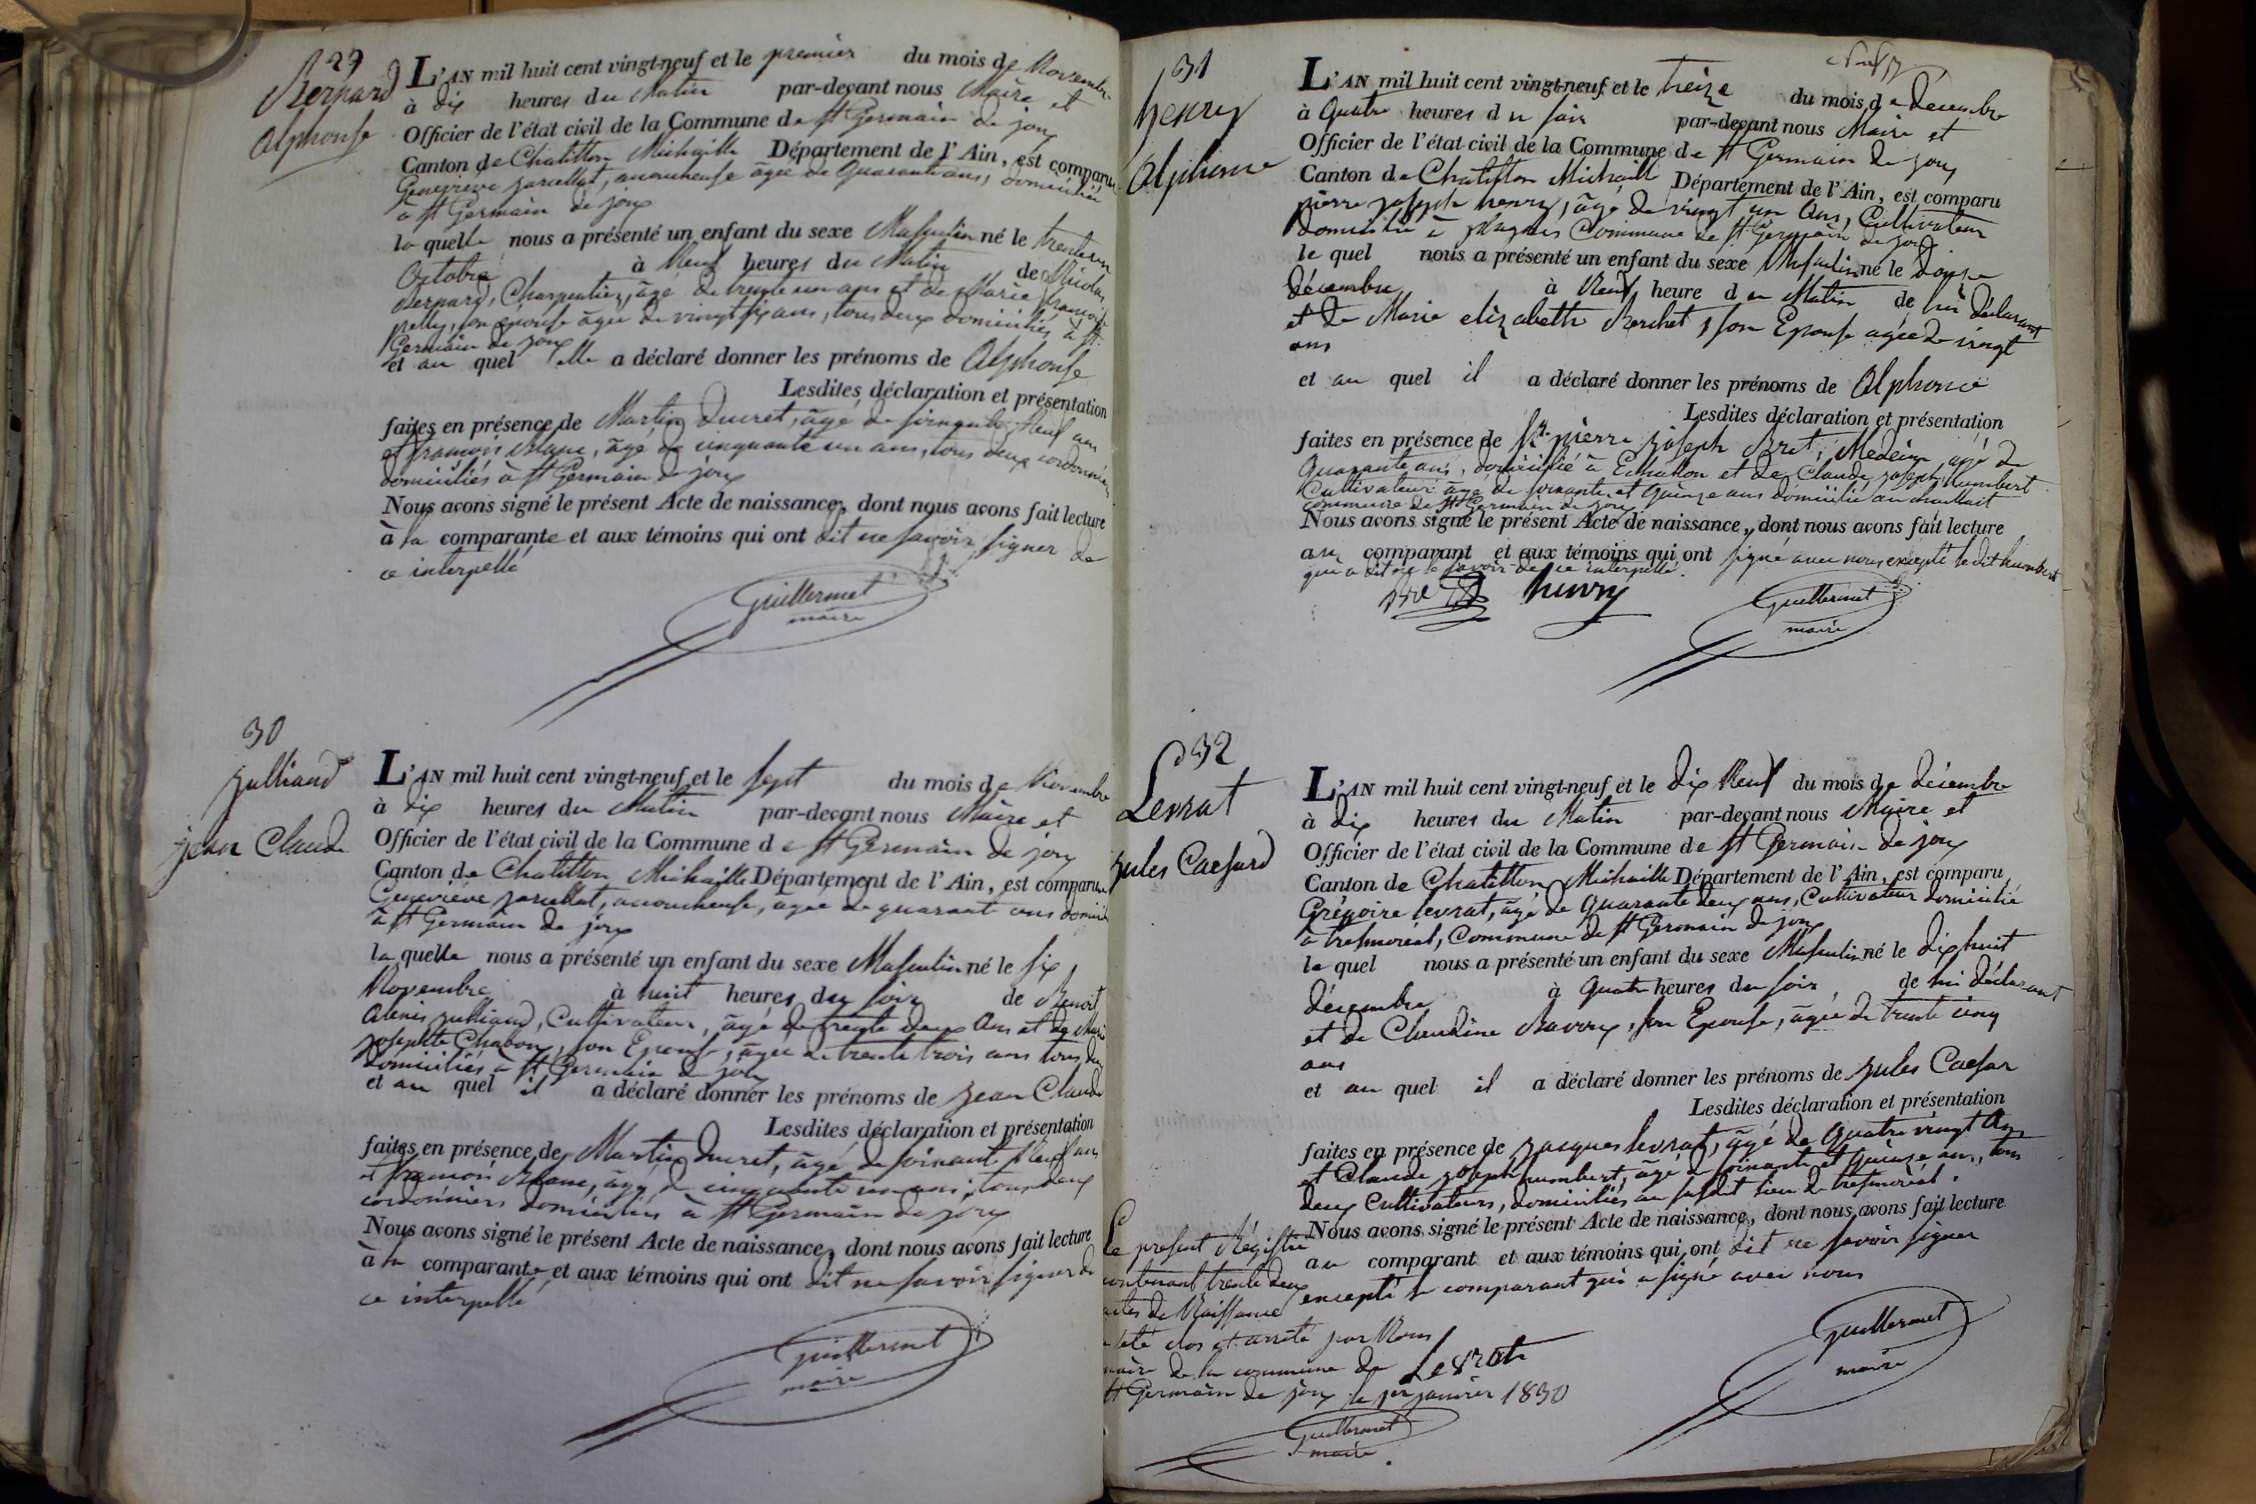 29
Bernard
Alphonse
L'AN mil huit cent vingt-neuf et le premier du mois de Novembre
à dix heures du Matin par-devant nous Maire et
Officier de l'état civil de la Commune de St Germain de joux
Canton de Chatillon Michaille Département de l'Ain, est comparu
Geneviève jarcellat, accoucheuse âgée de Quarante ans, domiciliée
à St Germain de joux
laquelle nous a présenté un enfant du sexe Masculin né le trente un
Octobre à Neuf heures du Matin de Nicolas
Bernard, Charpentier, âgé de trente un ans et de Marie françoise
pelly, son épouse âgée de vingt six ans, tous deux domiciliés à St
Germain de joux
et au quel elle a déclaré donner les prénoms de Alphonse
Lesdites déclaration et présentation
faites en présence de Martin Ducret, âgé de soixante Neuf ans
et françois Blanc, âgé de cinquante un ans, tous deux cordonniers
domiciliés à St Germain de joux
Nous avons signé le présent Acte de naissance, dont nous avons fait lecture
à la comparante et aux témoins qui ont dit ne savoir signer de
ce interpellé
Guillermet
maire
30
julliand
jean Claude
L'AN mil huit cent vingt-neuf et le sept du mois de Novembre
à dix heures du Matin par-devant nous Maire et
Officier de l'état civil de la Commune de St Germain de joux
Canton de Chatillon Michaille Département de l'Ain, est comparu
Geneviève jarcellat, accoucheuse, agée de quarante ans domiciliée
à St Germain de joux
laquelle nous a présenté un enfant du sexe Masculin né le six
Novembre à huit heures du soir de Benoit
Alexis julliand, Cultivateur, âgé de trente deux Ans et de Marie
josephte Chabon, son Epouse, âgée de trente trois ans tous deux
domiciliés à St Germain de joux
et au quel il a déclaré donner les prénoms de jean Claude
Lesdites déclaration et présentation
faites en présence de Martin Ducret, âgé de soixante Neuf ans
et françois Blanc, âgé de cinquante un ans, tous deux
cordonniers domiciliés à St Germain de joux
Nous avons signé le présent Acte de naissance, dont nous avons fait lecture
à la comparante et aux témoins qui ont dit ne savoir signer de
ce interpellé
Guillermet
maire
31
henry
Alphonse
L'AN mil huit cent vingt-neuf et le treize du mois de décembre
à Quatre heures du soir par-devant nous Maire et
Officier de l'état civil de la Commune de St Germain de joux
Canton de Chatillon Michaille Département de l'Ain, est comparu
pierre joseph henry, âgé de vingt un Ans, Cultivateur
domicilié à plagnes Commune de St Germain de joux
le quel nous a présenté un enfant du sexe Masculin né le douze
décembre à Neuf heure du Matin de lui déclarant
et de Marie elizabeth Berchet, son Epouse agée de vingt
ans
et au quel il a déclaré donner les prénoms de Alphonse
Lesdites déclaration et présentation
faites en présence de Sr. pierre joseph Bret, Medecin agé de
Quarante ans, domicilié à Echallon et de Claude joseph humbert
Cultivateur âgé de soixante et Quinze ans domicilié au
commune de St Germain de joux
Nous avons signé le présent Acte de naissance, dont nous avons fait lecture
au comparant et aux témoins qui ont signé avec nous excepté le dit humbert
qui a dit ne le savoir de ce interpellé.
Bret henry Guillermet
maire
32
Levrat
jules Caesard
L'AN mil huit cent vingt-neuf et le dix Neuf du mois de décembre
à dix heures du Matin par-devant nous Maire et
Officier de l'état civil de la Commune de St Germain de joux
Canton de Chatillon Michaille Département de l'Ain, est comparu
Grégoire levrat, âgé de Quarante deux ans, Cultivateur domicilié
à tresmoréal, Commune de St Germain de joux
le quel nous a présenté un enfant du sexe Masculin né le dix huit
décembre à Quatre heures du soir de lui déclarant
et de Claudine Bavoux, son Epouse, agée de trente cinq
ans
et au quel il a déclaré donner les prénoms de jules Caesar
Lesdites déclaration et présentation
faites en présence de jacques levrat, âgé de Quatre vingt Ans
et Claude joseph humbert, âgé de soixante et Quinze ans, tous
deux Cultivateurs, domiciliés au susdit lieu de tresmoréal.
Nous avons signé le présent Acte de naissance, dont nous avons fait lecture
au comparant et aux témoins qui ont dit ne savoir signer
excepté le comparant qui a signé avec nous
Levrat
Guillermet
maire
Le présent Régistre
contenant trente deux
actes de Naissance
a été clos et arrêté par Nous
maire de la commune de
St Germain de joux le 1er janvier 1830
Guillermet
maire